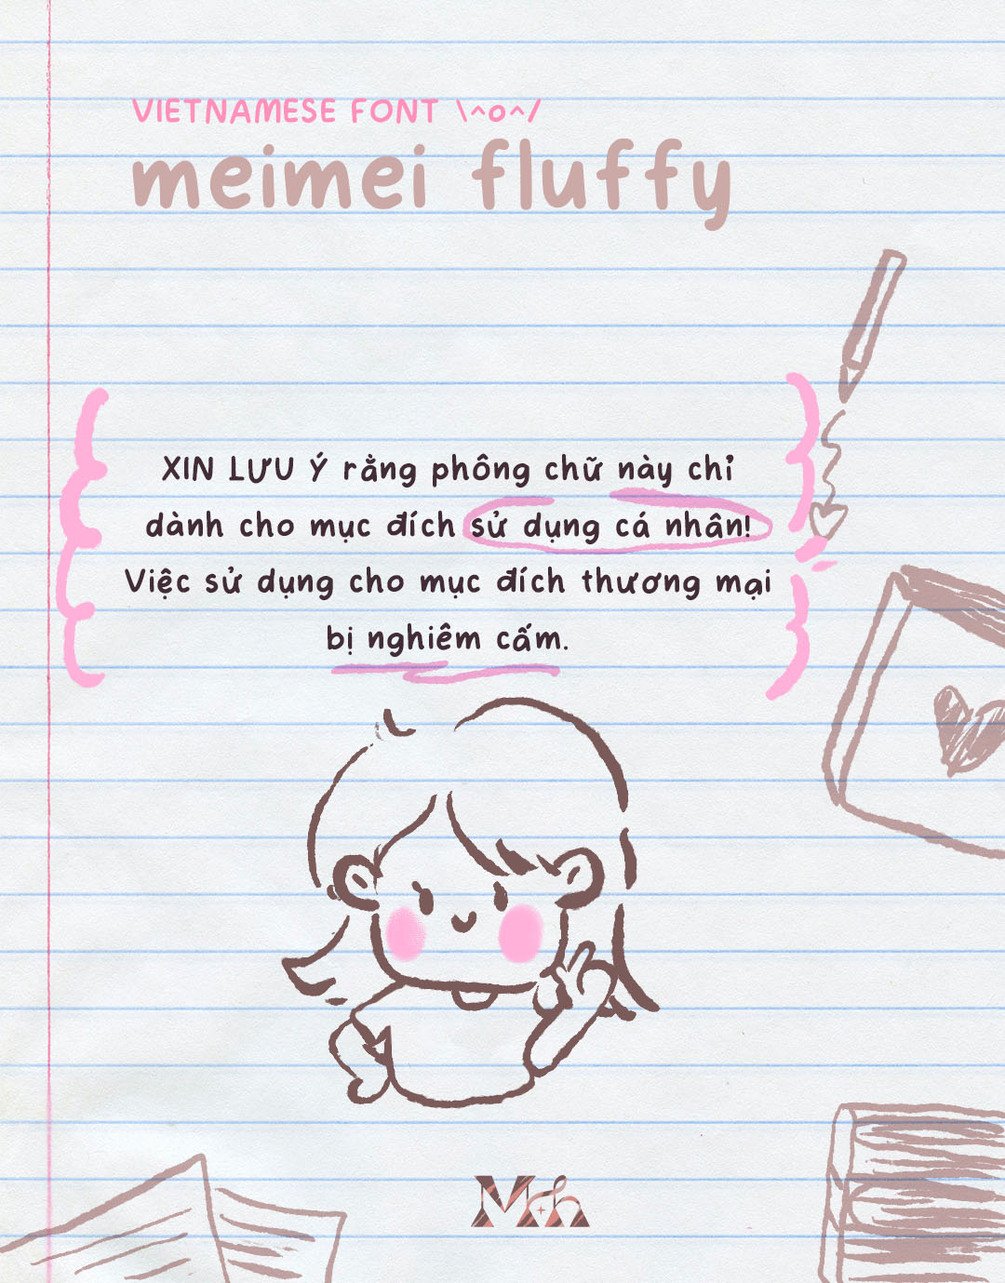 VIETNAMESE FONT \^o^/
meimei fluffy
XIN LƯU Ý rằng phông chữ này chỉ
dành cho mục đích sử dụng cá nhân!
Việc sử dụng cho mục đích thương mại
bị nghiêm cấm.